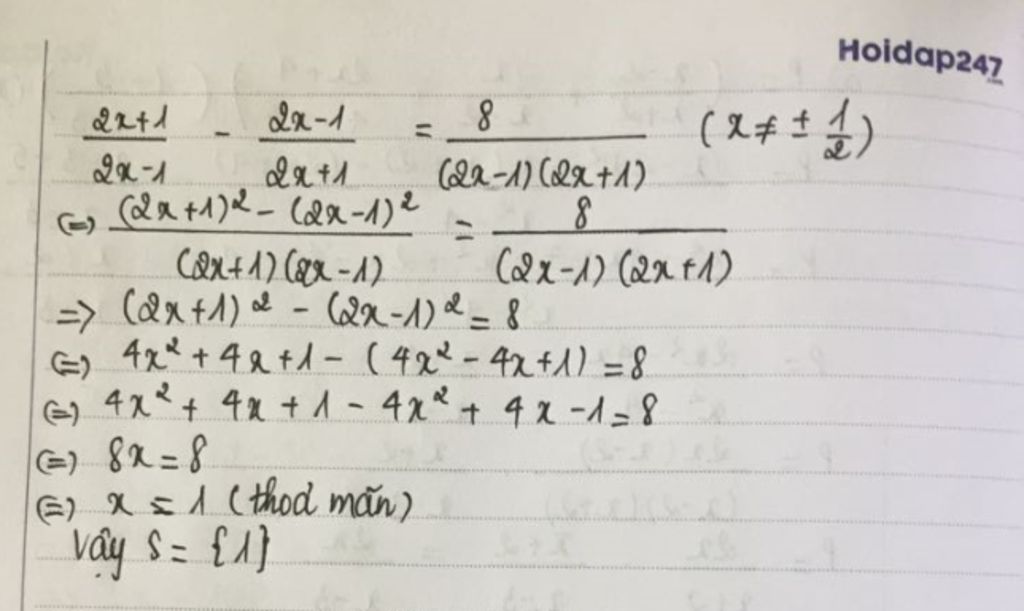 Hoidap247
(2x+1)/(2x-1) - (2x-1)/(2x+1) = 8/((2x-1)(2x+1)) (x ≠ ± 1/2)
(=) ((2x+1)² - (2x-1)²)/((2x+1)(2x-1)) = 8/((2x-1)(2x+1))
=> (2x+1)² - (2x-1)² = 8
(=) 4x² + 4x + 1 - (4x² - 4x + 1) = 8
(=) 4x² + 4x + 1 - 4x² + 4x - 1 = 8
(=) 8x = 8
(=) x = 1 (thoả mãn)
Vậy S = {1}